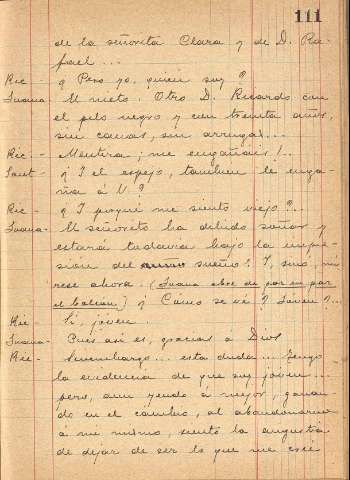 111
de la señorita Clara y de D. Ra-
fael...
Ric - ¿ Pero yo, quien soy?
Juana - El nieto. Otro D. Ricardo con
el pelo negro y con treinta años,
sin canas, sin arrugas...
Ric. - Mentira; me engañais!..
Sant - ¿ Y el espejo, tambien le enga-
ña á V.?
Ric - ¿ Y porqué me siento viejo?...
Juana - El señorito ha debido soñar y
estará todavia bajo la impre-
sión del sueño. Y, sinó, mi
rese ahora. (Juana abre de par en par
el balcón) ¿ Cómo se vé? ¿ Joven?...
Ric - Si, joven..
Juana - Pues asi es, gracias á Dios
Ric - Sinembargo... esta duda... Tengo
la evidencia de que soy joven...
pero, aun yendo á mejor, ganan-
do en el cambio, al abandonarme
á mi mismo, siento la angustia
de dejar de ser lo que me creí